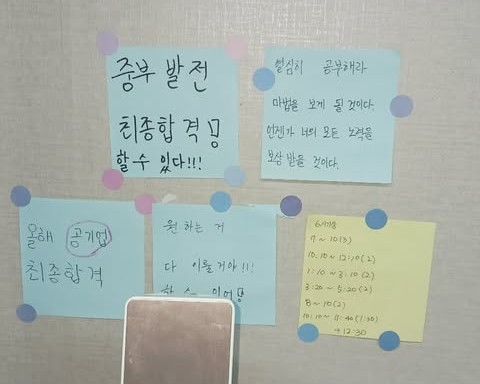 중부 발전
최종합격 꼭
할 수 있다!!!
열심히 공부해라
마법을 보게 될 것이다.
언젠가 너의 모든 노력을
보상 받을 것이다.
올해 공기업
최종합격
원하는 거
다 이룰거야!!!
할 수 있어
7 ~ 10(3)
10:10 ~ 12:10(2)
1:10 ~ 3:10(2)
3:20 ~ 5:20(2)
8 ~ 10(2)
10:10 ~ 11:40(1:30)
→12:30